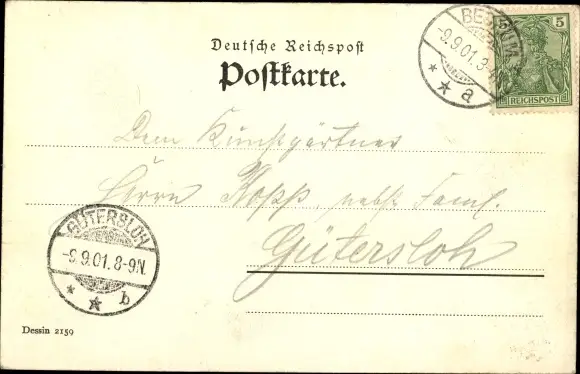 Deutsche Reichspost
Postkarte.
BECKUM
-9.9.01.3-4N.
a
5 5
REICHSPOST
Dem Kunstgärtner
Herrn Kopp, nebst Faml.
Gütersloh
GÜTERSLOH
-9.9.01.8-9N.
b
Dessin 2159